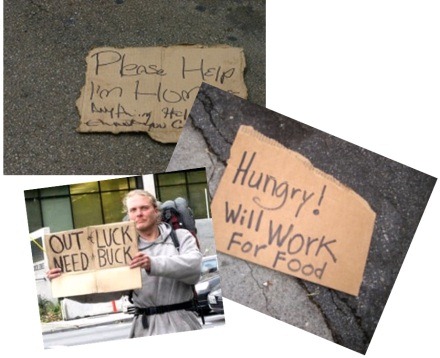 Please Help
I'm Hom
Anything Hel
Hungry!
Will Work
For Food
OUT of LUCK
NEED A BUCK